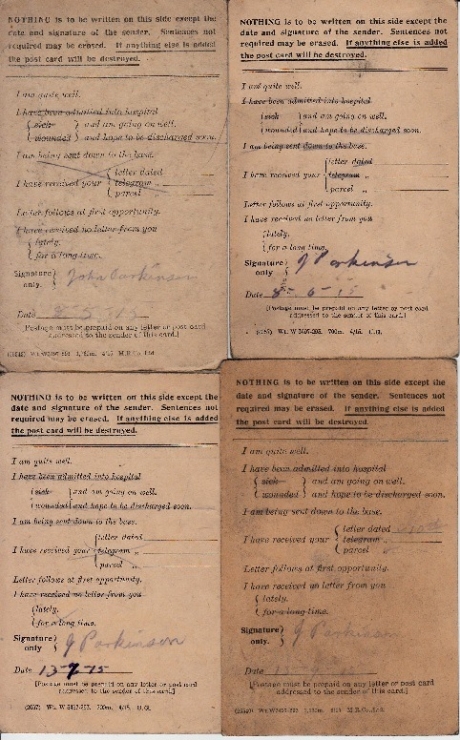 NOTHING is to be written on this side except the
date and signature of the sender. Sentences not
required may be erased. If anything else is added
the post card will be destroyed.
I am quite well.
I have been admitted into hospital
{ sick } and am going on well.
{ wounded } and hope to be discharged soon.
I am being sent down to the base.
I have received your { letter dated
telegram „
parcel „
Letter follows at first opportunity.
I have received no letter from you
{ lately.
{ for a long time.
Signature only. } John Parkinson
Date
[Postage must be prepaid on any letter or post card
addressed to the sender of this card.]
NOTHING is to be written on this side except the
date and signature of the sender. Sentences not
required may be erased. If anything else is added
the post card will be destroyed.
I am quite well.
I have been admitted into hospital
{ sick } and am going on well.
{ wounded } and hope to be discharged soon.
I am being sent down to the base.
I have received your { letter dated
telegram „
parcel „
Letter follows at first opportunity.
I have received no letter from you
{ lately.
{ for a long time.
Signature only } J Parkinson
Date 8-6-15
[Postage must be prepaid on any letter or post card
addressed to the sender of this card.]
NOTHING is to be written on this side except the
date and signature of the sender. Sentences not
required may be erased. If anything else is added
the post card will be destroyed.
I am quite well.
I have been admitted into hospital
{ sick } and am going on well.
{ wounded } and hope to be discharged soon.
I am being sent down to the base.
I have received your { letter dated
telegram „
parcel „
Letter follows at first opportunity.
I have received no letter from you
{ lately.
{ for a long time.
Signature only } J Parkinson
Date 13-7-15
[Postage must be prepaid on any letter or post card
addressed to the sender of this card.]
NOTHING is to be written on this side except the
date and signature of the sender. Sentences not
required may be erased. If anything else is added
the post card will be destroyed.
I am quite well.
I have been admitted into hospital
{ sick } and am going on well.
{ wounded } and hope to be discharged soon.
I am being sent down to the base.
I have received your { letter dated
telegram „
parcel „
Letter follows at first opportunity.
I have received no letter from you
{ lately.
{ for a long time.
Signature only. } J Parkinson
Date
[Postage must be prepaid on any letter or post card
addressed to the sender of this card.]